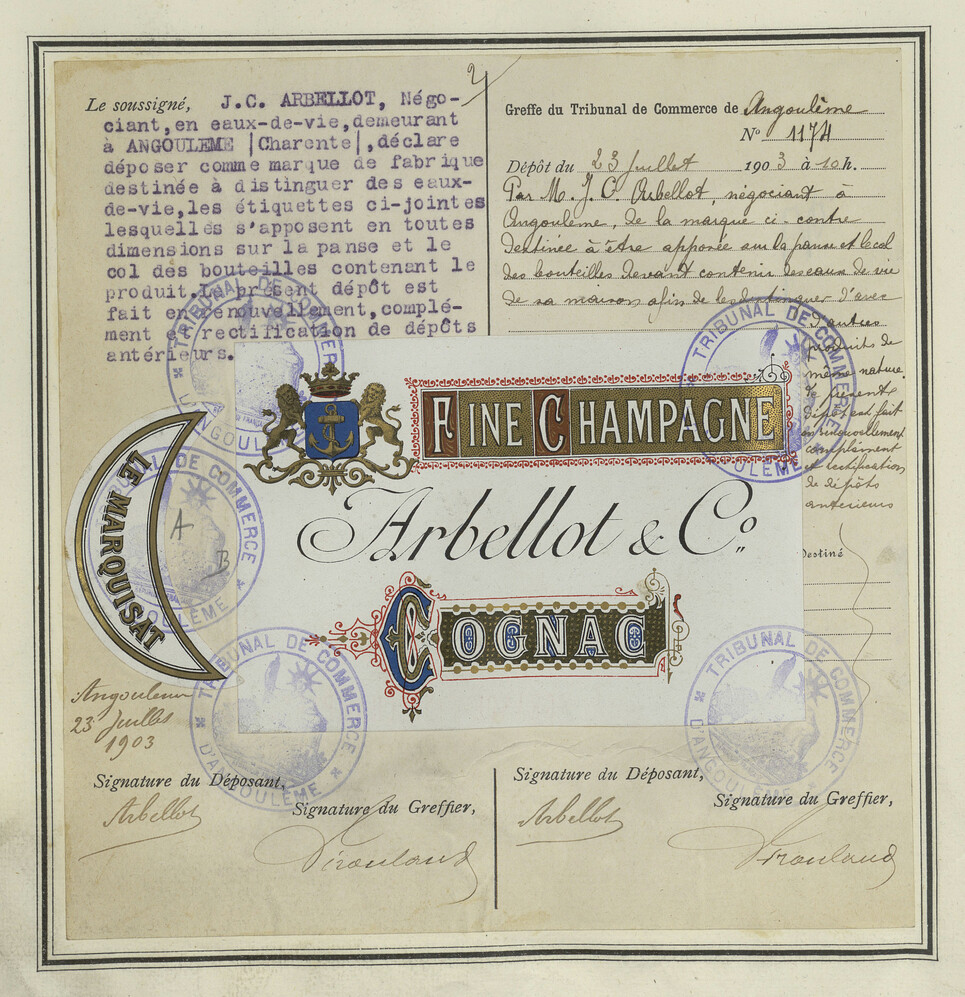 2
Le soussigné, J.C. ARBELLOT, Négo-
ciant,en eaux-de-vie,demeurant
à ANGOULEME |Charente|,déclare
déposer comme marque de fabrique
destinée à distinguer des eaux-
de-vie,les étiquettes ci-jointes
lesquelles s'apposent en toutes
dimensions sur la panse et le
col des bouteilles contenant le
produit.Le présent dépôt est
fait en renouvellement,complé-
ment et rectification de dépôts
antérieurs.
Greffe du Tribunal de Commerce de Angoulême
N° 1174
Dépôt du 23 Juillet 1903 à 10 h.
Par M. J. C. Arbellot, négociant à
Angoulême, de la marque ci-contre
destinée à être apposée sur la panse et le col
des bouteilles devant contenir des eaux de vie
de sa maison afin de les distinguer d'avec
d'autres
produits de
même nature.
Le présent
dépôt est fait
en renouvellement
complément
et rectification
de dépôts
antérieurs
Destiné
FINE CHAMPAGNE
Arbellot & Co
COGNAC
LE MARQUISAT
A
B
TRIBUNAL DE COMMERCE
D'ANGOULÊME
TRIBUNAL DE COMMERCE
D'ANGOULÊME
TRIBUNAL DE COMMERCE
D'ANGOULÊME
TRIBUNAL DE COMMERCE
D'ANGOULÊME
TRIBUNAL DE COMMERCE
D'ANGOULÊME
Angoulême
23 Juillet
1903
Signature du Déposant,
Arbellot
Signature du Greffier,
Signature du Déposant,
Arbellot
Signature du Greffier,